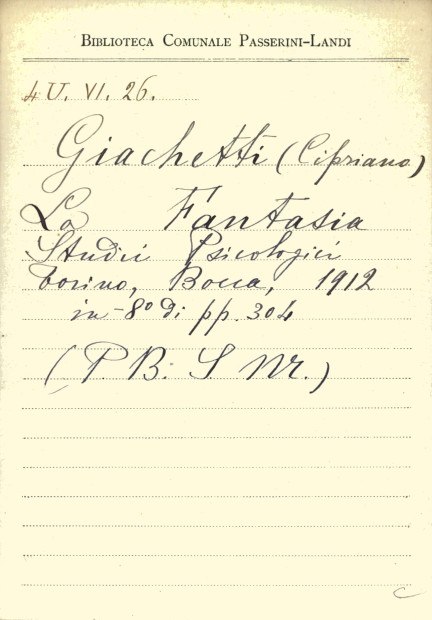 BIBLIOTECA COMUNALE PASSERINI-LANDI
4 U. VI. 26.
Giachetti (Cipriano)
La Fantasia
Studii Psicologici
Torino, Bocca, 1912
in-8º di pp. 304
(P. B. S. Nr.)
C